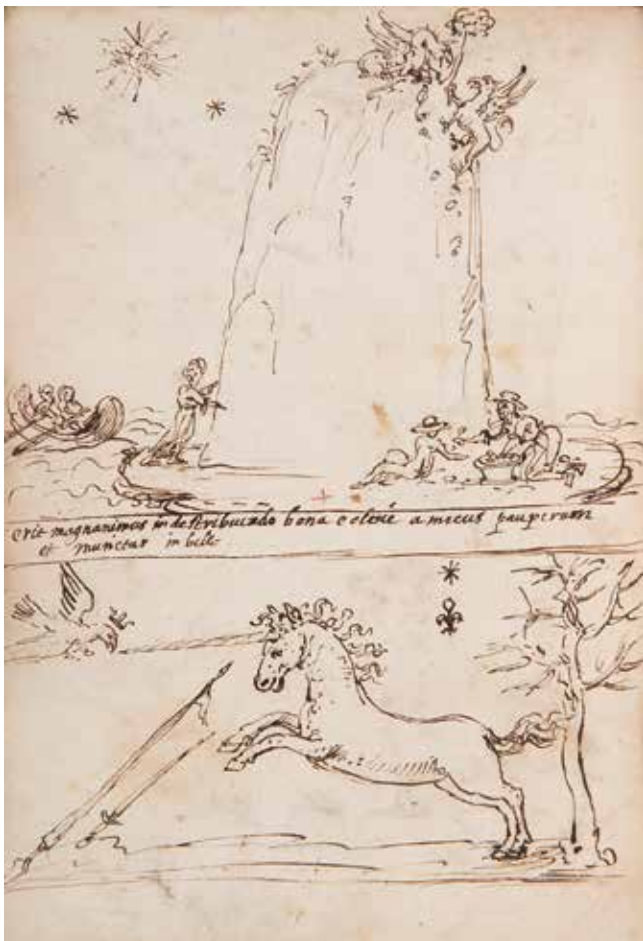 erit magnanimus in destribuendo bona eclesie amicus pauperum
et munetus in bello